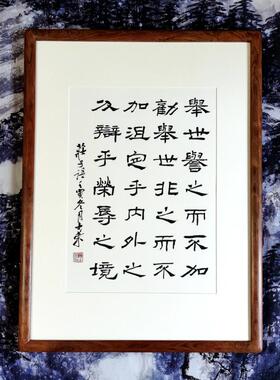 舉世譽之而不加
勸舉世非之而不
加沮定乎內外之
分辯乎榮辱之境
莊子語壬寅冬月